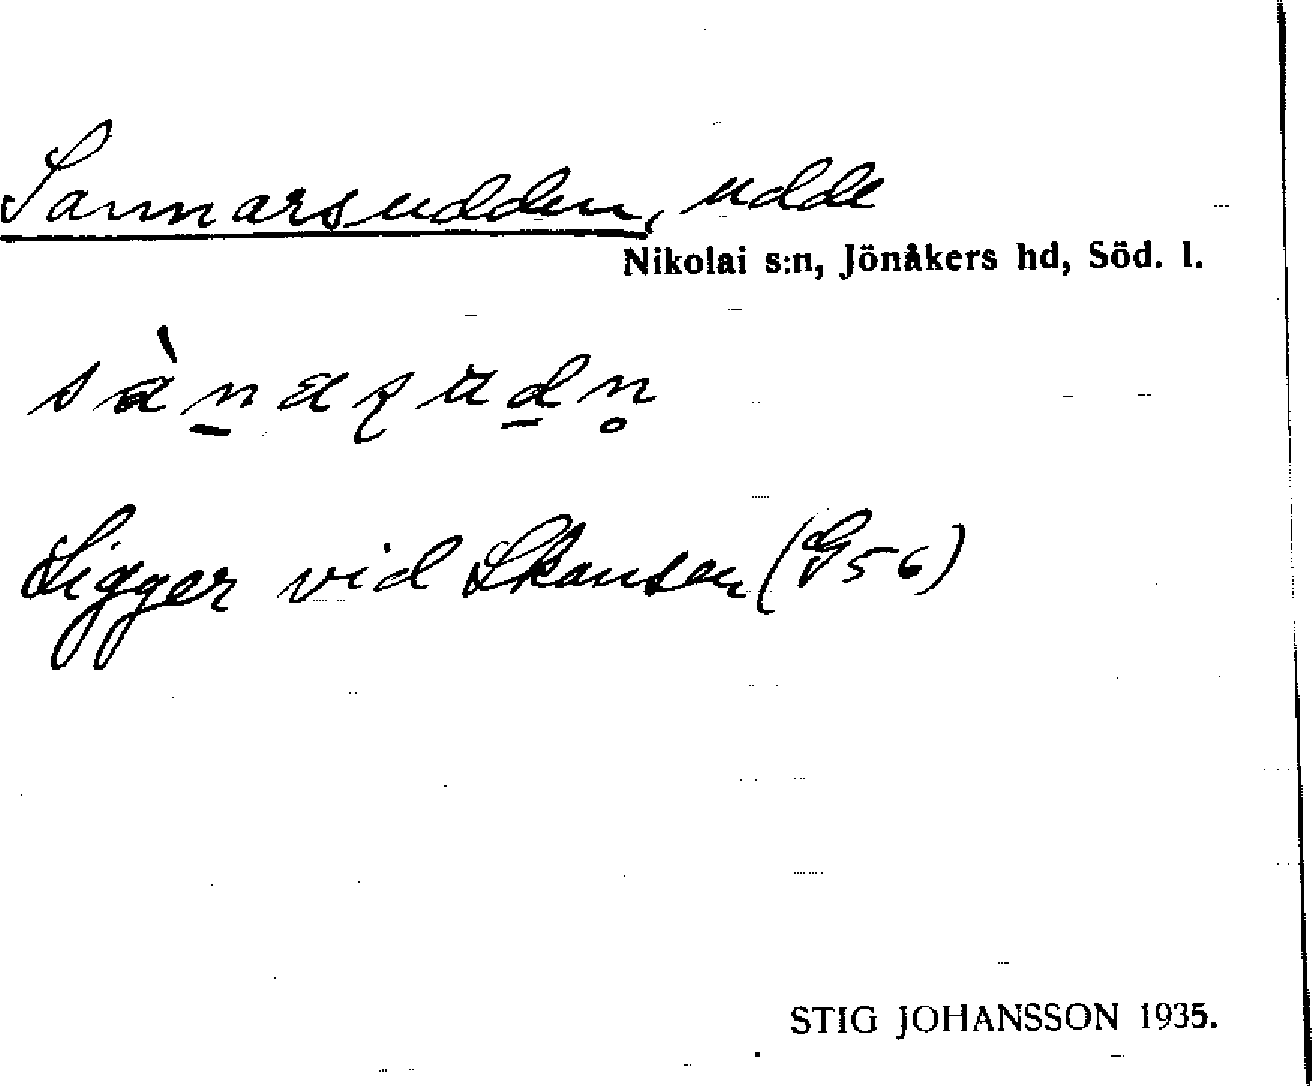 Sannarsudden, udde
Nikolai s:n, Jönåkers hd, Söd. l.
Ligger vid Skansen (G56)
STIG JOHANSSON 1935.